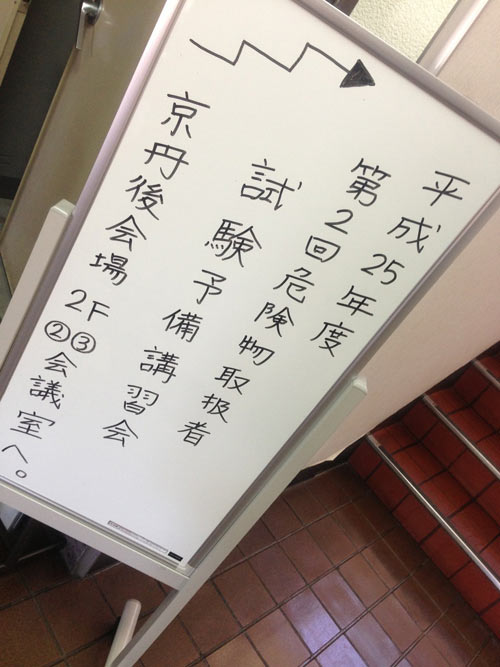 平成25年度
第2回危険物取扱者
試験予備講習会
京丹後会場 2F
②③会議室へ。